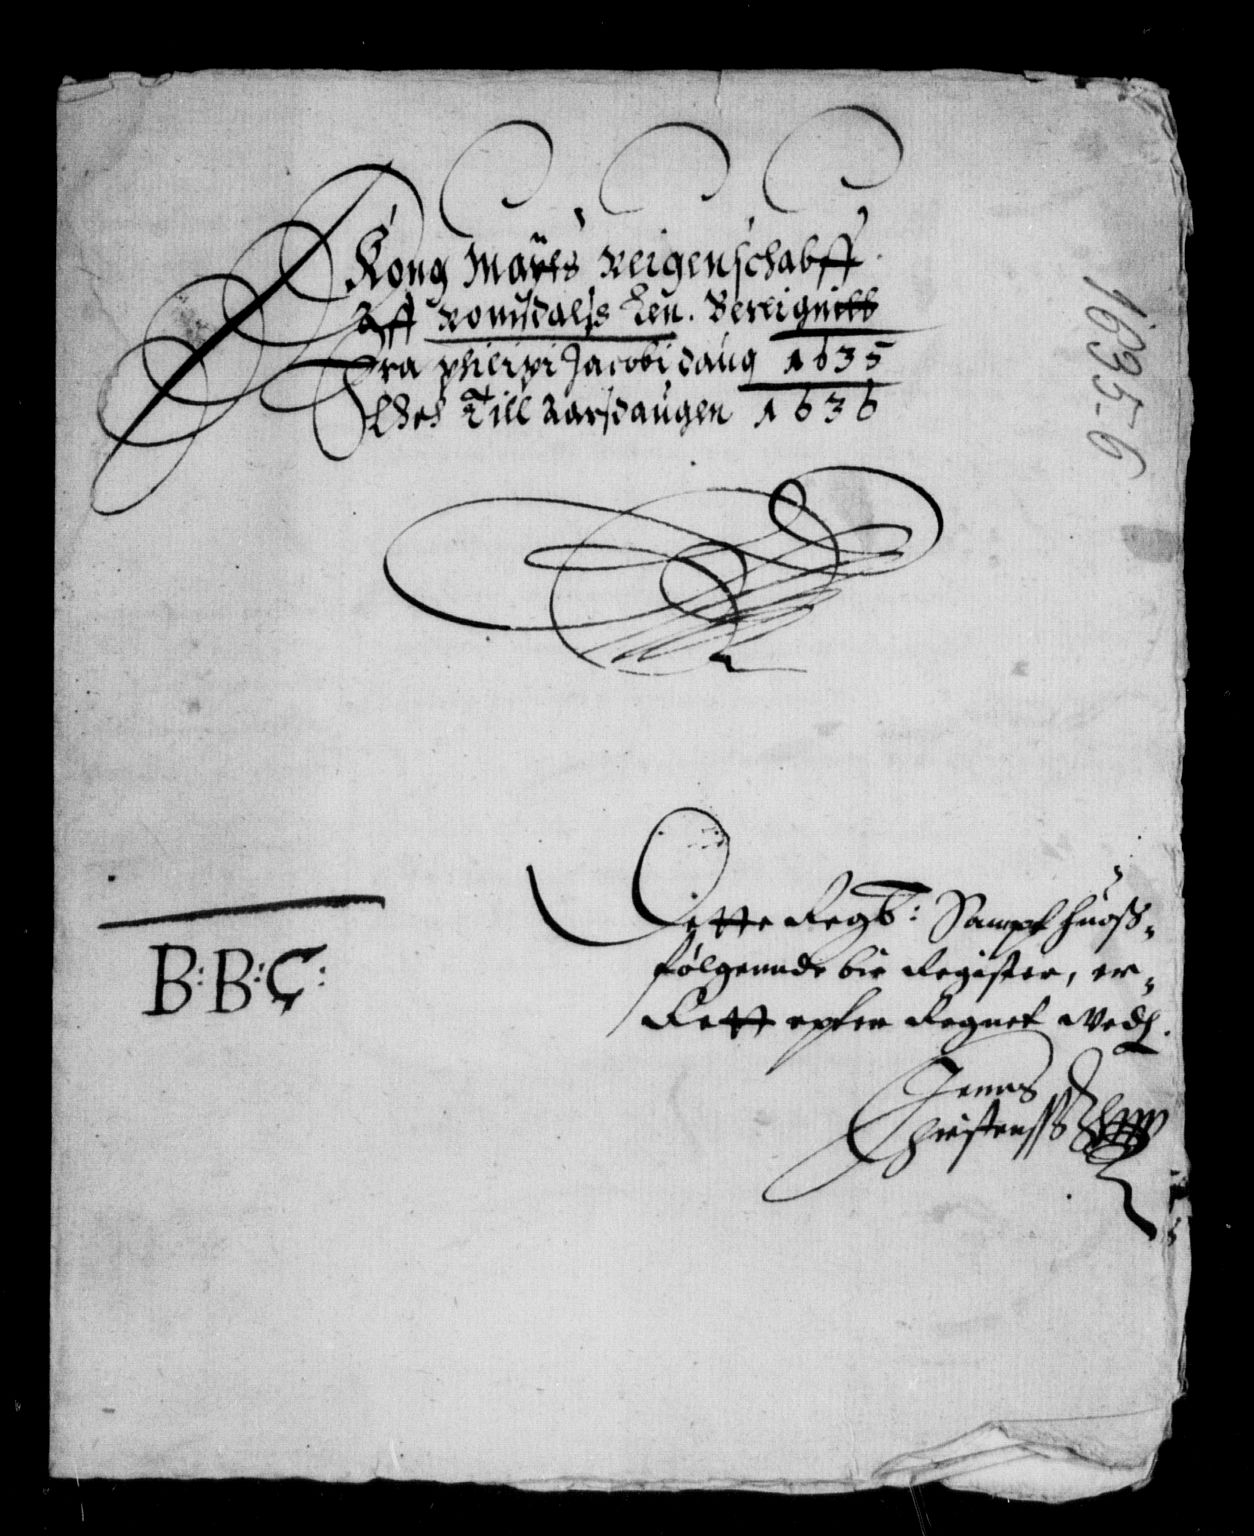 Kong Maÿts Reigenschabff
Aff Romsdalss Len. Bereignitt
Fra phieipi Jacobi daug 1635
Och Till Aarsdaugen 1636
1635-6
Dette Regb: Sampt huoss-
følgennde bie Register, er-
Rett epter Regnet Wedh.
B:B:C:
Jenns
Christenss